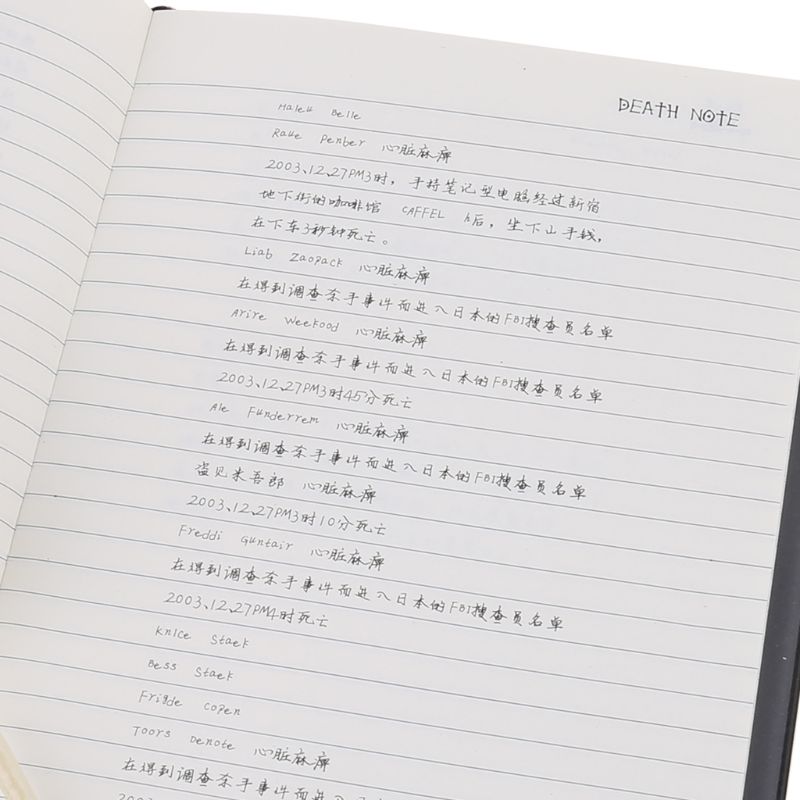 DEATH NOTE
Malett Belle
Raue Penber 心脏麻痹
2003、12、27PM3时，手持笔记型电脑经过新宿
地下街的咖啡馆 CAFFEL 后，坐下山手钱，
在下车3秒钟死亡。
Liab Zaopack 心脏麻痹
在得到调查杀手事件而进入日本的FBI搜查员名单
Arire Weekood 心脏麻痹
在得到调查杀手事件而进入日本的FBI搜查员名单
2003、12、27PM3时45分死亡
Ale Funderrem 心脏麻痹
在得到调查杀手事件而进入日本的FBI搜查员名单
盗见米吾郎 心脏麻痹
2003、12、27PM3时10分死亡
Freddi Guntair 心脏麻痹
在得到调查杀手事件而进入日本的FBI搜查员名单
2003、12、27PM4时死亡
Knice Staek
Bess Staek
Frigde Copen
Toors Denote 心脏麻痹
在得到调查杀手事件而进入日本的FBI搜查员名单